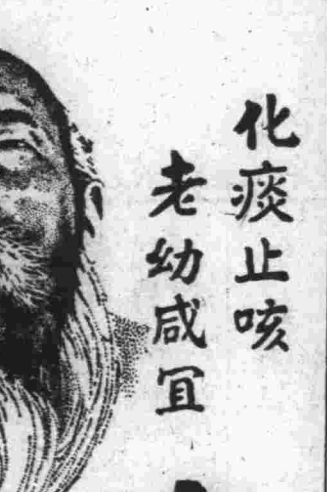 化痰止咳
老幼咸冝